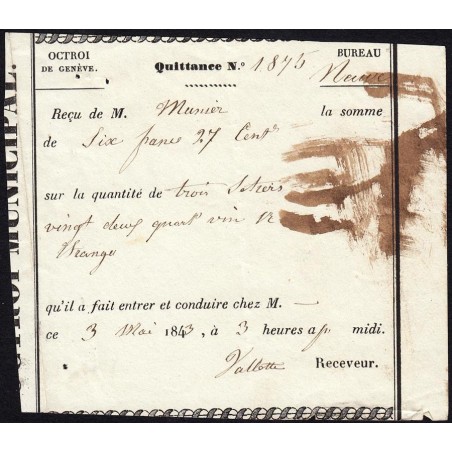 OCTROI
DE GENÈVE.
Quittance N.º 1875
BUREAU
Neuve
Reçu de M. Munier la somme
de Six francs 27 Cent.
sur la quantité de trois Setiers
vingt deux quart. vin
qu'il a fait entrer et conduire chez M. —
ce 3 Mai 1843, à 3 heures ap. midi.
Vallotte Receveur.
OCTROI MUNICIPAL.